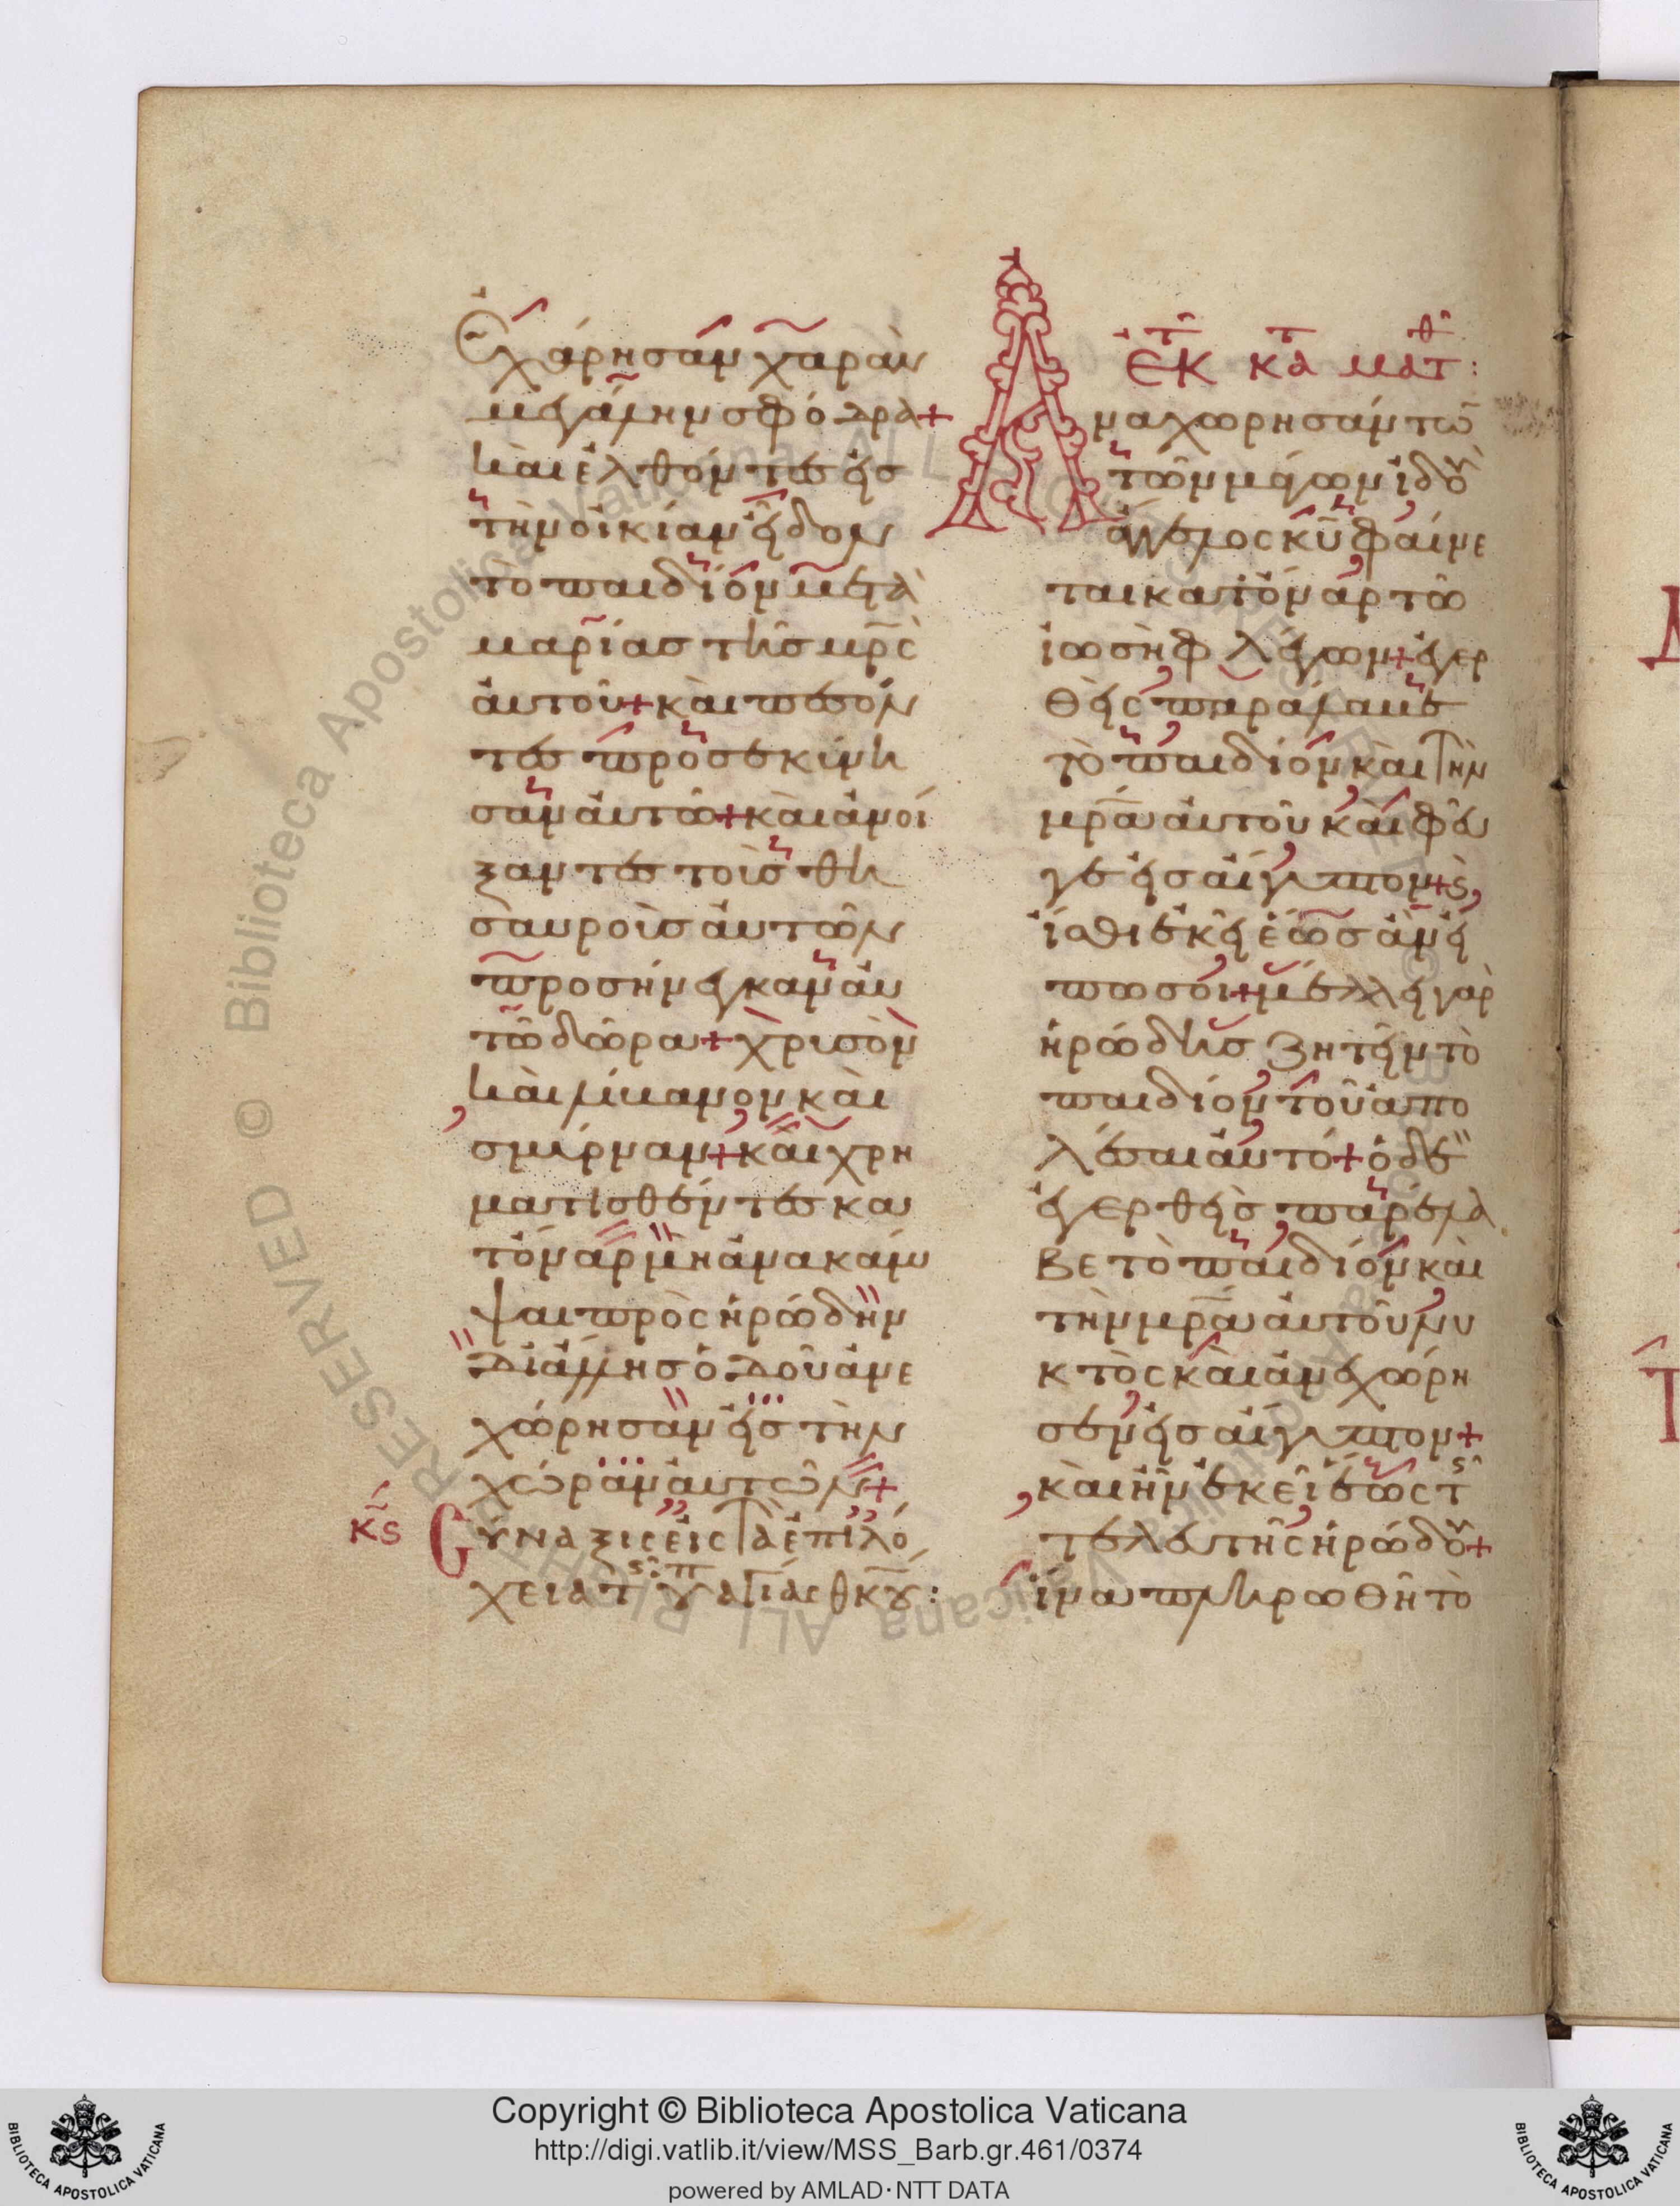 ἐχάρησαν χαρὰν
μεγάλην σφόδρα+
καὶ ἐλθόντες εἰς
τὴν οἰκίαν εἶδον
το παιδίον μετὰ
μαρίας τῆς μρ̅ς
ἀυτοῦ+καὶ πεσόν
τες προσεκύνη
σαν ἀυτῶ+καὶ ἀνοί
ξαντες τοὶς θη
σαυροὶς ἀυτῶν
προσήνεγκαν ἀυ
τῶ δῶρα+χρισὸν
καὶ λίβανον καὶ
σμύρναν+καὶ χρη
ματισθέντες κα
τ' όναρ μὴ ἀνακάμ
ψαι πρὸς ἡρώδην
δι' ἄλλης ὁδοῦ ἀνε
χώρησαν εἰς τὴν
χώραν ἀυτῶν+
κς Σύναξις εἰς Τὰ ἐπιλό
χεια τ ὑ ἁγίας θκου:
ἐκ κατ ματθ:
Αναχωρησάντω̅
τῶν μάγων ἰδοὺ
ἄγγελος κυ̅ φαίνε
ται κατ' όναρ τῶ
ἰωσὴφ λέγων+ἐγερ
θεὶς παράλαβε
τὸ παιδίον καὶ Τὴν
μρ̅α ἀυτοῦ καὶ φεῦ
γε εἰς αἴγυπτον+ς
ἴσθι ἐκεῖ ἕως ἂν εἴ
πω σοί+μέλλει γὰρ
ἡρώδης ζητεῖν τὸ
παιδίον τοῦ απο
λέσαι ἀυτό+ὁ δὲ
ἐγερθεὶς παρέλα
βε τὸ παιδίον καὶ
τὴν μρ̅α ἀυτοῦ νυ
κτὸς καὶ ἀνεχώρη
σεν εἰς αἴγυπτον+
καὶ ἦν ἐκεῖ ἕως τ
τελευτῆς ἡρώδου+
ἵνα πληρωθῆ τὸ
Copyright © Biblioteca Apostolica Vaticana
http://digi.vatlib.it/view/MSS_Barb.gr.461/0374
powered by AMLAD·NTT DATA